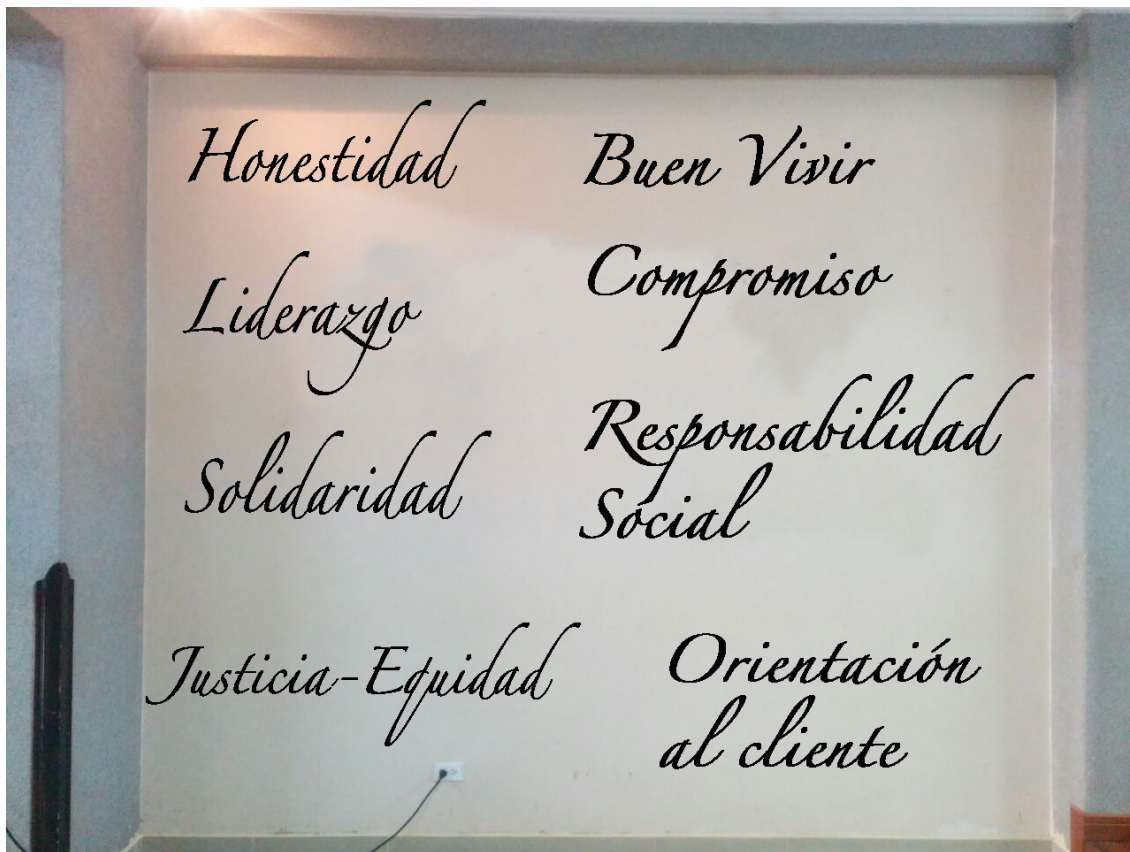 Honestidad
Liderazgo
Solidaridad
Justicia-Equidad
Buen Vivir
Compromiso
Responsabilidad
Social
Orientación
al cliente